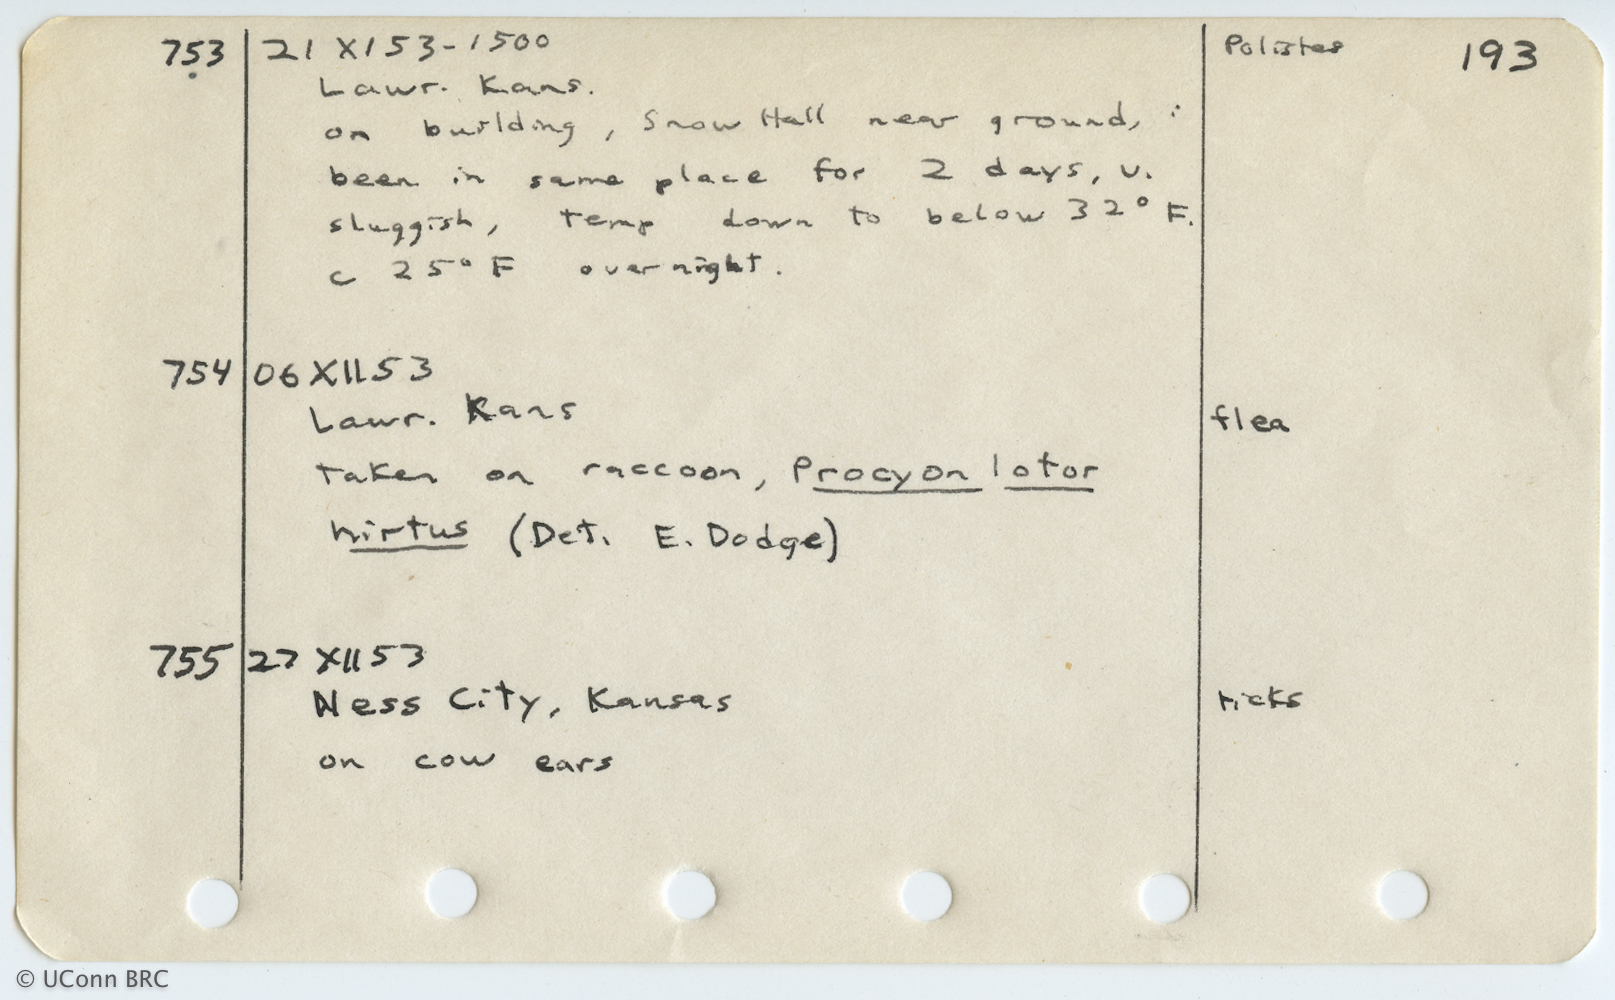 753 21 XI 53-1500 Polistes 193
Lawr. Kans.
on building, Snow Hall near ground,
been in same place for 2 days, v.
sluggish, temp down to below 32° F.
c 25° F overnight.
754 06 XII 53
Lawr. Kans flea
taken on raccoon, Procyon lotor
hirtus (Det. E. Dodge)
755 27 XII 53
Ness City, Kansas ticks
on cow ears
© UConn BRC